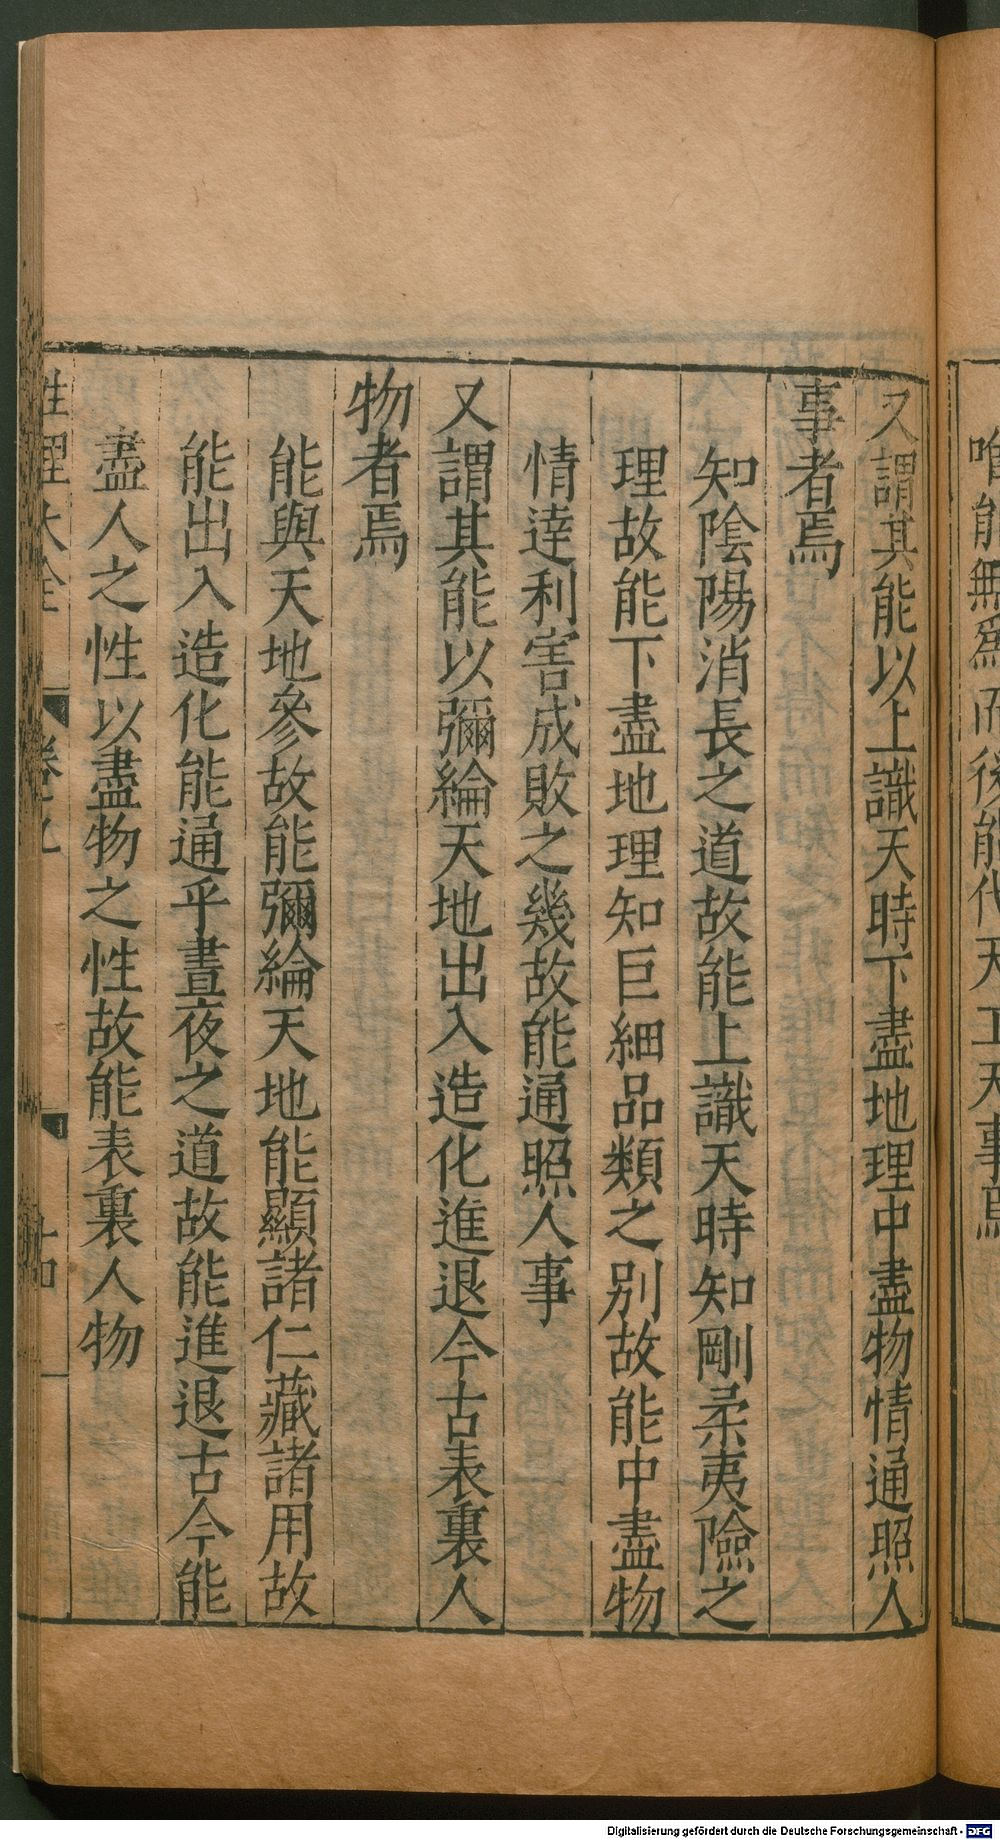 唯能無爲而後能代天工天事焉
又謂其能以上識天時下盡地理中盡物情通照人
事者焉
知陰陽消長之道故能上識天時知剛柔夷險之
理故能下盡地理知巨細品類之別故能中盡物
情達利害成敗之幾故能通照人事
又謂其能以彌綸天地出入造化進退今古表裏人
物者焉
能與天地參故能彌綸天地能顯諸仁藏諸用故
能出入造化能通乎晝夜之道故能進退古今能
盡人之性以盡物之性故能表裏人物
性理大全 卷之九
Digitalisierung gefördert durch die Deutsche Forschungsgemeinschaft - DFG